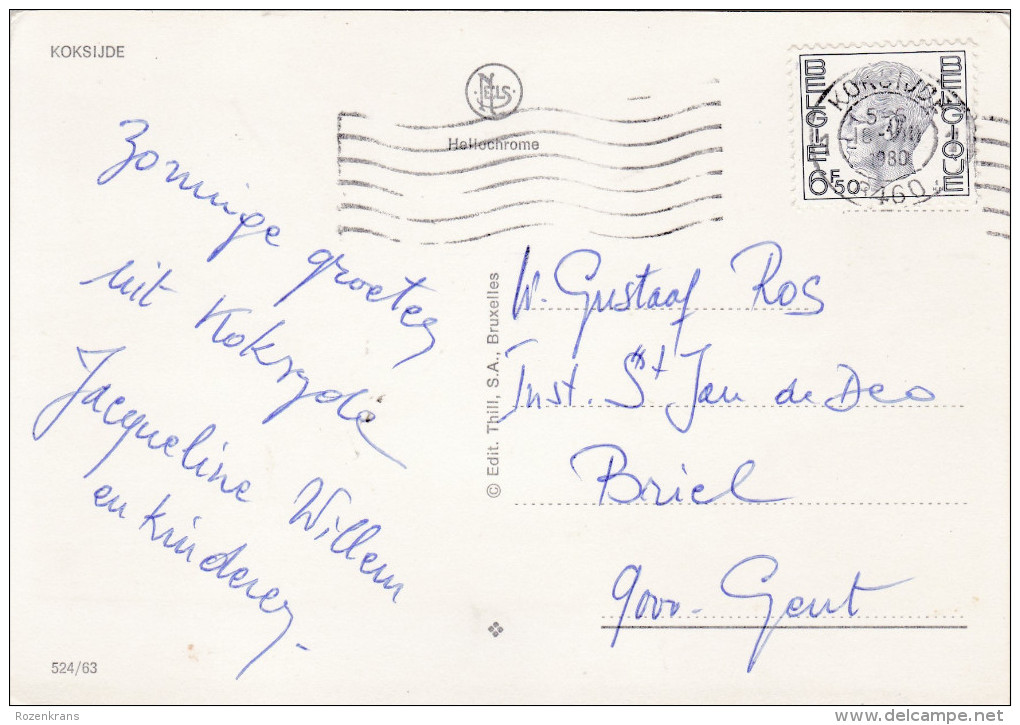 KOKSIJDE
NELS
Heliochrome
BELGIË BELGIQUE
6F50
KOKSIJDE
1980
8460
Zonnige groeten
uit Koksyde
Jacqueline Willem
en kinderen.
© Edit. Thill, S.A., Bruxelles
Gustaaf Ros
Inst. St Jan de Deo
Briel
9000 - Gent
524/63
Rozenkrans
www.delcampe.net